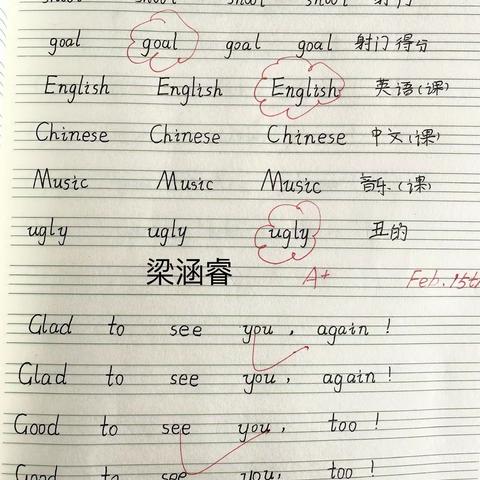 shoot shoot shoot shoot 射门
goal goal goal goal 射门得分
English English English 英语(课)
Chinese Chinese Chinese 中文(课)
Music Music Music 音乐(课)
ugly ugly ugly 丑的
梁涵睿 A+ Feb. 15th
Glad to see you, again!
Glad to see you, again!
Good to see you, too!
Good to see you, too!